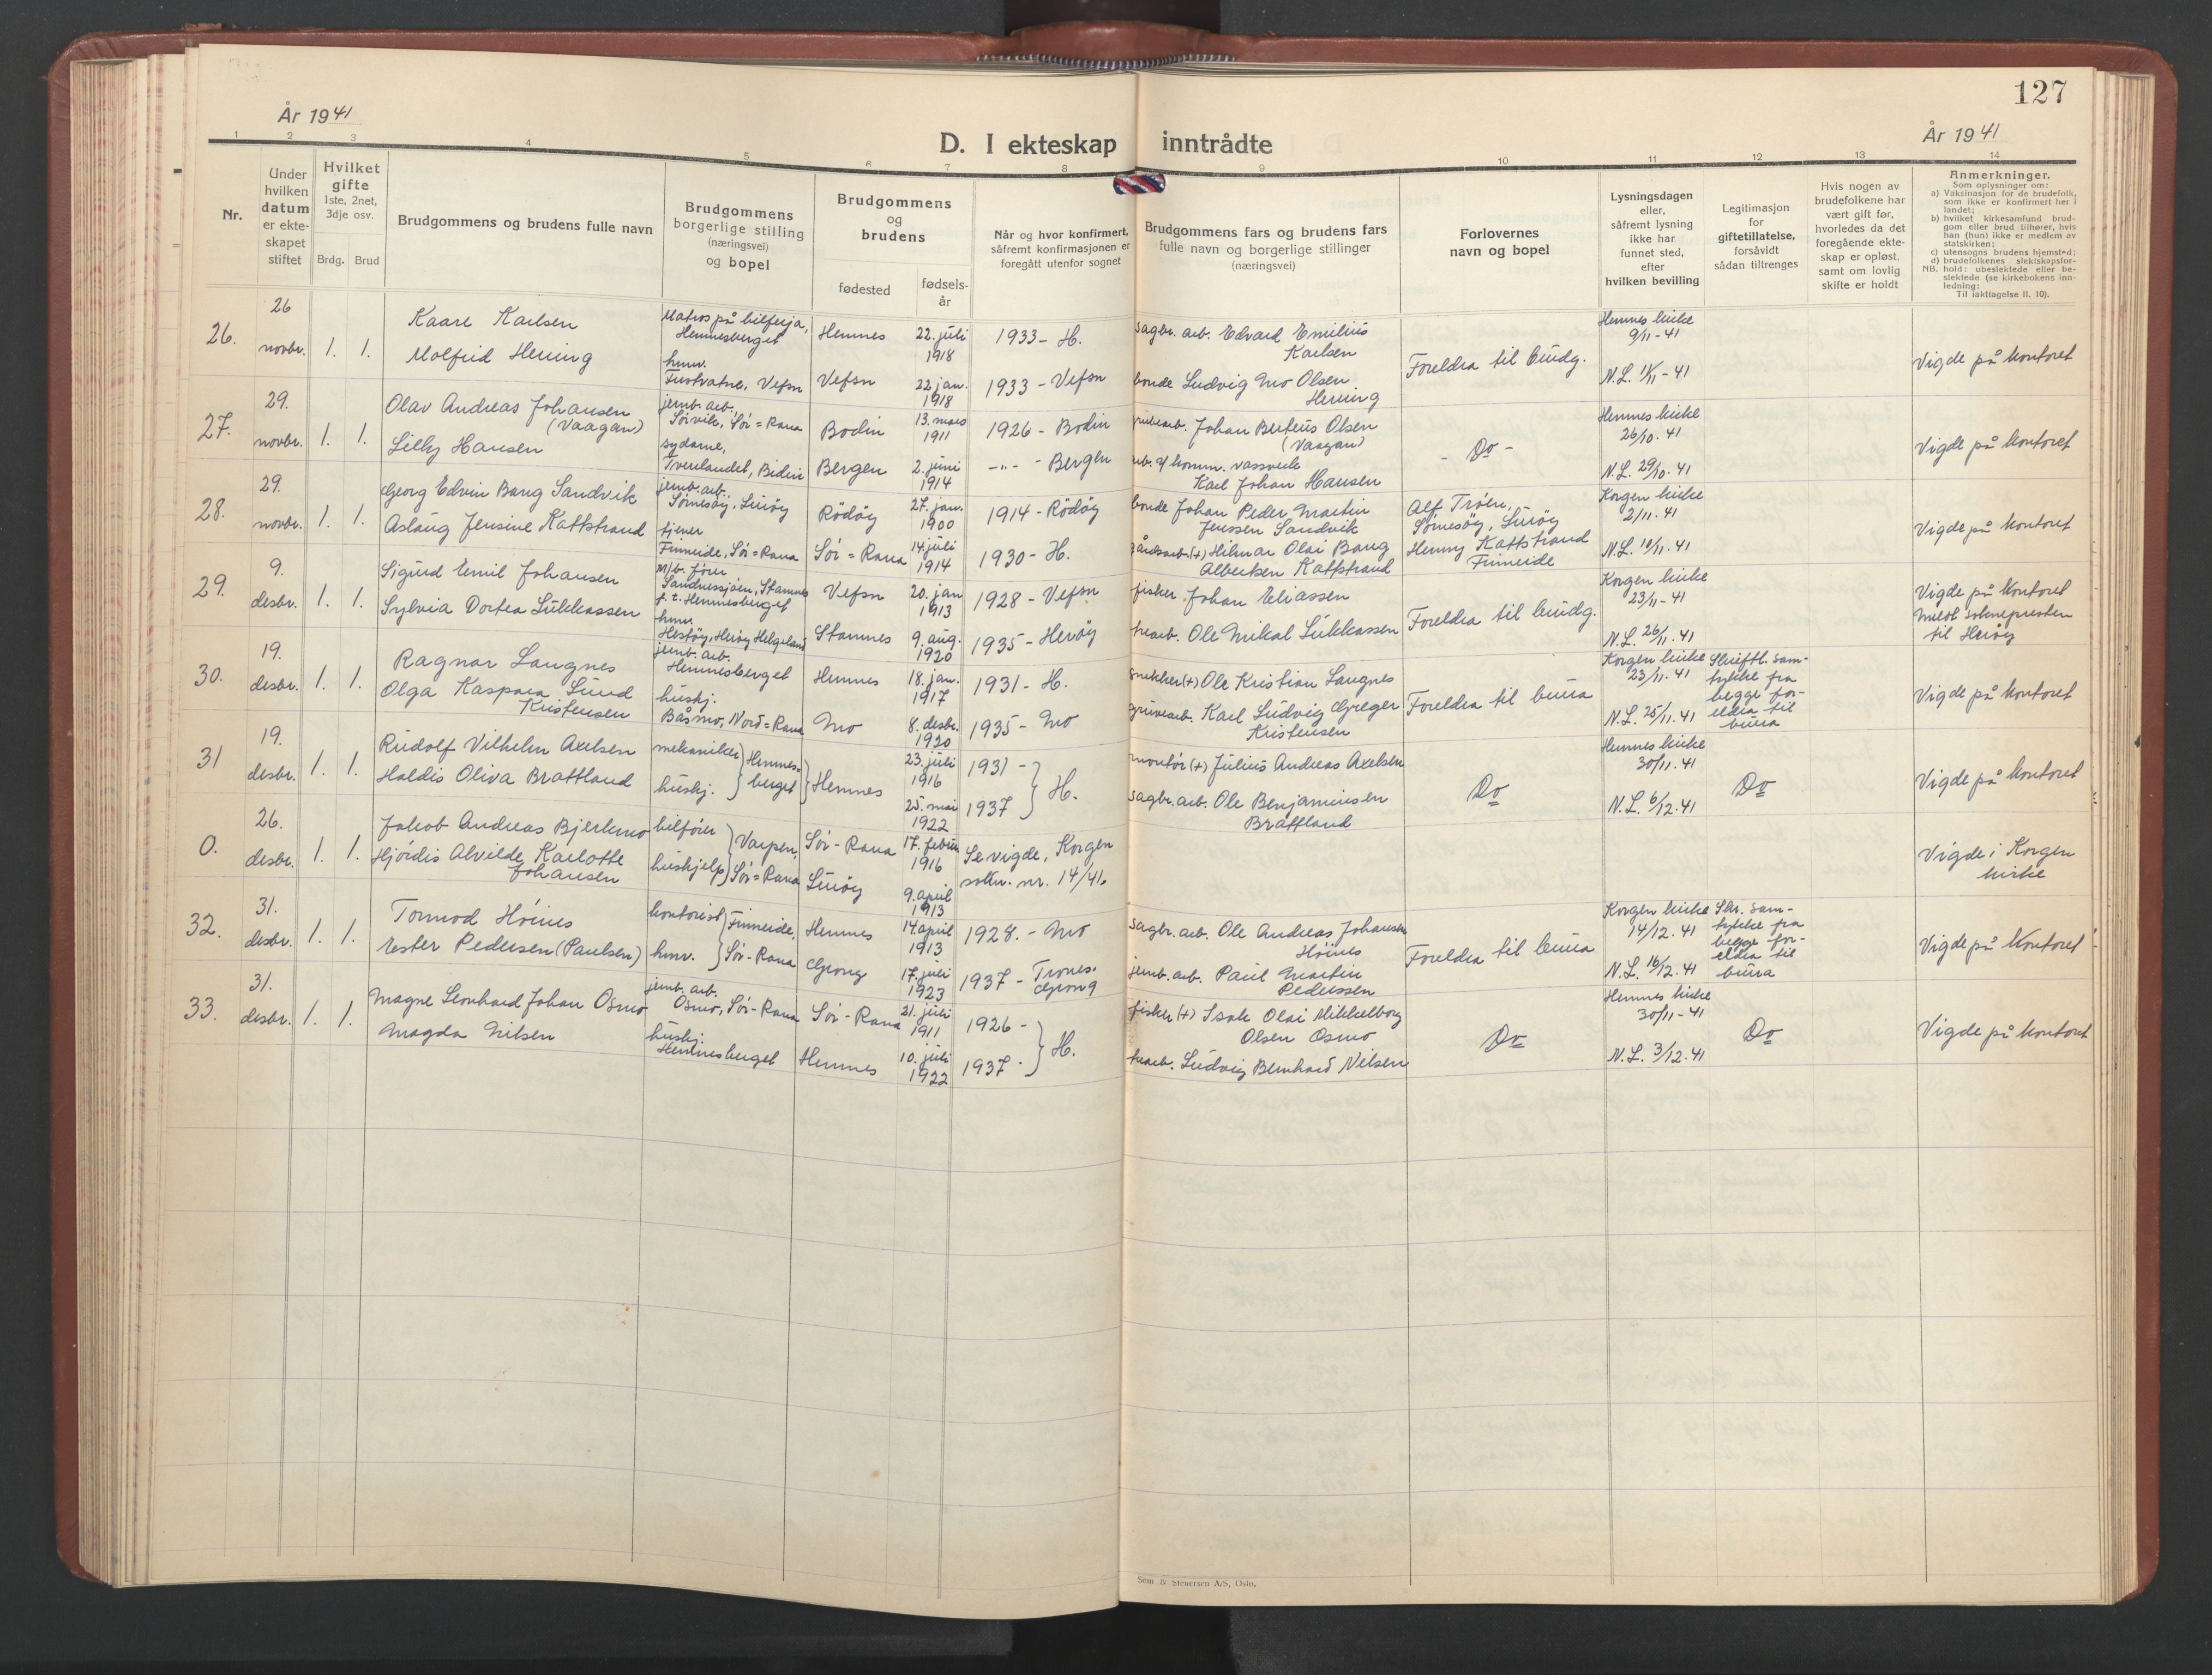 127
År 1941
År 1941
D. I ekteskap inntrådte
1 2 3 4 5 6 7 8 9 10 11 12 13 14
Nr.
Under
hvilken
datum
er ekte-
skapet
stiftet
Hvilket
gifte
1ste, 2net,
3dje osv.
Brdg. Brud
Brudgommens og brudens fulle navn
Brudgommens
borgerlige stilling
(næringsvei)
og bopel
Brudgommens
og
brudens
fødested
fødsels-
år
Når og hvor konfirmert,
såfremt konfirmasjonen er
foregått utenfor sognet
Brudgommens fars og brudens fars
fulle navn og borgerlige stillinger
(næringsvei)
Forlovernes
navn og bopel
Lysningsdagen
eller,
såfremt lysning
ikke har
funnet sted,
efter
hvilken bevilling
Legitimasjon
for
giftetillatelse,
forsåvidt
sådan tiltrenges
Hvis nogen av
brudefolkene har
vært gift før,
hvorledes da det
foregående ekte-
skap er opløst,
samt om lovlig
skifte er holdt
Anmerkninger.
Som oplysninger om:
a) Vaksinasjon for de brudefolk,
som ikke er konfirmert her i
landet;
b) hvilket kirkesamfund brud-
gom eller brud tilhører, hvis
han (hun) ikke er medlem av
statskirken;
c) utensogns brudens hjemsted;
d) brudefolkenes slektskapsfor-
NB. hold: ubeslektede eller be-
slektede (se kirkebokens inn-
ledning:
Til iakttagelse II. 10).
26.
26
novbr.
1. 1.
Kaare Karlsen
Molfrid Herring
Matros på bilferja,
Hemnesberget
hmv.
Fustvatne, Vefsn
Hemnes
Vefsn
22. juli
1918
22. jan.
1918
1933 - H.
1933 - Vefsn
sagbr. arb. Edvard Emilius
Karlsen
bonde Ludvig Mo Olsen
Herring
Foreldra til brudg.
Hemnes kirke
9/11-41
N.L. 11/11-41
Vigde på kontoret
27.
29.
novbr.
1. 1.
Olav Andreas Johansen
(Vaagan)
Lilly Hansen
jernb. arb.,
Sørvik, Sør=Rana
sydame,
Tverlandet, Bodin
Bodin
Bergen
13. mars
1911
2. juni
1914
1926 - Bodin
-"- - Bergen
gruvearb. Johan Berteus Olsen
(Vaagan)
arb. v/ komm. vassverk
Karl Johan Hansen
- Do -
Hemnes kirke
26/10.41
N.L. 29/10.41
Vigde på kontoret
28.
29.
novbr.
1. 1.
Georg Edvin Bang Sandvik
Aslaug Jensine Kattstrand
jernb. arb.,
Sørnesøy, Lurøy
tjener
Finneide, Sør=Rana
Rödöy
Sør=Rana
27. jan.
1900
14. juli
1914
1914 - Rödöy
1930 - H.
bonde Johan Peder Martin
Jenssen Sandvik
gårdsarb. (+) Hilmar Olai Bang
Albertsen Kattstrand
Alf Trøen,
Sørnesøy, Lurøy
Henny Kattstrand
Finneide
Korgen kirke
2/11.41
N.L. 10/11.41
Vigde på kontoret
29.
9.
desbr.
1. 1.
Sigurd Emil Johansen
Sylvia Dortea Lukkassen
M/b. fører
Sandnessjøen, Stamnes
f.t. Hemnesberget
hmv.
Hestøy, Herøy Helgeland
Vefsn
Stamnes
20. jan
1913
9. aug.
1920
1928 - Vefsn
1935 - Herøy
fisker Johan Eliassen
trearb. Ole Mikal Lukkassen
Foreldra til brudg.
Korgen kirke
23/11-41
N.L. 26/11.41
Vigde på kontoret
Meldt soknepresten
til Herøy
30.
19.
desbr.
1. 1.
Ragnar Langnes
Olga Kaspara Lund
Kristensen
jernb. arb.
Hemnesberget
hushj.
Båsmo, Nord=Rana
Hemnes
Mo
18. jan.
1917
8. desbr.
1920
1931 - H.
1935 - Mo
snekker (+) Ole Kristian Langnes
gruvearb. Karl Ludvig Greger
Kristensen
Foreldra til brura
Korgen kirke
23/11.41
N.L. 25/11.41
Skriftl. sam-
tykke fra
begge for-
eldra til
brura
Vigde på kontoret
31
19.
desbr.
1. 1.
Rudolf Vilhelm Axelsen
Haldis Oliva Brattland
mekaniker
hushj.
Hemnes-
berget
Hemnes
23. juli
1916
25. mai
1922
1931 -
1937
H.
montør (+) Julius Andreas Axelsen
sagbr. arb. Ole Benjaminsen
Brattland
Do
Hemnes kirke
30/11.41
N.L. 6/12.41
Do
Vigde på kontoret
0.
26.
desbr.
1. 1.
Jakob Andreas Bjerkmo
Hjørdis Alvilde Karlotte
Johansen
bilfører
hushjelp
Varpen,
Sør=Rana
Sør-Rana
Lurøy
17. febru.
1916
9. april
1913
Se vigde, Korgen
sokn. nr. 14/41.
Vigde i Korgen
kirke
32.
31.
desbr.
1. 1.
Tormod Höines
Ester Pedersen (Paulsen)
kontorist
hmv.
Finneide,
Sør-Rana
Hemnes
Grong
14. april
1913
17. juli
1923
1928. - Mo
1937 - Trones.
Grong
sagbr. arb. Ole Andreas Johansen
Höines
jernb. arb. Paul Martin
Pedersen
Foreldra til brura
Korgen kirke
14/12.41
N.L. 16/12.41
Skr. sam-
tykke fra
begge for-
eldra til
brura
Vigde på kontoret
33.
31.
desbr.
1. 1.
Magne Leonhard Johan Osmo
Magda Nilsen
jernb. arb.
Osmo, Sør-Rana
hushj.
Hemnesberget
Sør-Rana
Hemnes
21. juli
1911
10. juli
1922
1926 -
1937 -
H.
fisker (+) Isak Olai Mikkelborg
Olsen Osmo
trearb. Ludvig Bernhard Nilsen
Do
Hemnes kirke
30/11-41
N.L. 3/12.41
Do
Vigde på kontoret
Sem & Stenersen A/S, Oslo.